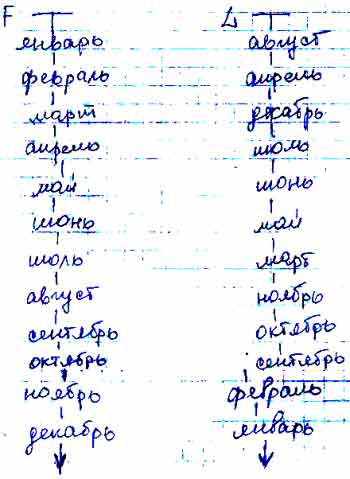 F L
январь август
февраль апрель
март декабрь
апрель июль
май июнь
июнь май
июль март
август ноябрь
сентябрь октябрь
октябрь сентябрь
ноябрь февраль
декабрь январь